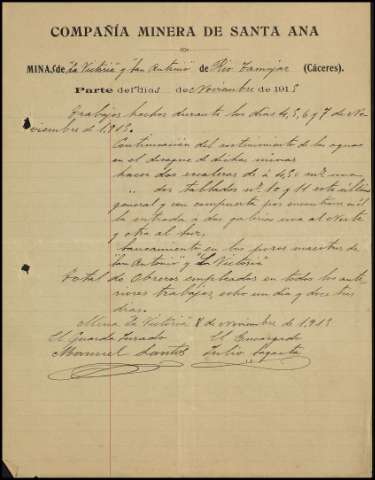 COMPAÑÍA MINERA DE SANTA ANA
MINAS de "La Victoria" y "San Antonio" de Rio Tamujar (Cáceres).
Parte del días de Noviembre de 1915
Trabajos hechos durante los días 4, 5, 6 y 7 de No-
viembre de 1915.
Continuación del sostenimiento de las aguas
en el desague de dichas minas
hacer dos escaleras de á 4,50 mts. una
" dos tablados nº 10 y 11 este último
general y con compuerta por encontrarse en él
la entrada á dos galerias una al Norte
y otra al Sur.
Saneamiento en los pozos maestros de
"San Antonio" y "La Victoria"
Total de Obreros empleados en todos los ante-
riores trabajos, ocho un dia y doce tres
dias.
Mina "La Victoria" 8 de Noviembre de 1915
El Guarda Jurado El Encargado
Manuel Santos Julio